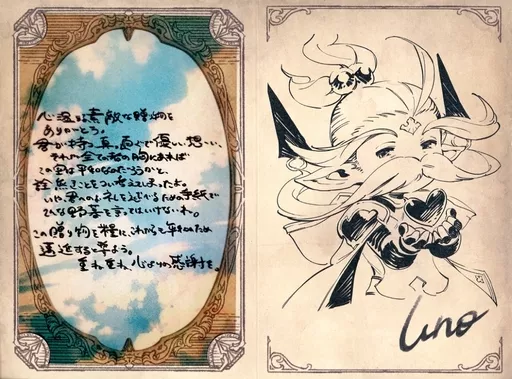 心温まる素敵な贈り物を
ありがとう。
君が持つ真っ直ぐで優しい想い、
それが全ての者の胸にあれば
この空は平和なのだろうかと、
詮無きことをつい考えてしまったよ。
いや、君へのお礼を述べるための手紙で
そんな野暮を言ってはいけないね。
この贈り物を糧に、これからも平和のため
邁進すると誓うよ。
重ね重ね、心よりの感謝を。
Uno